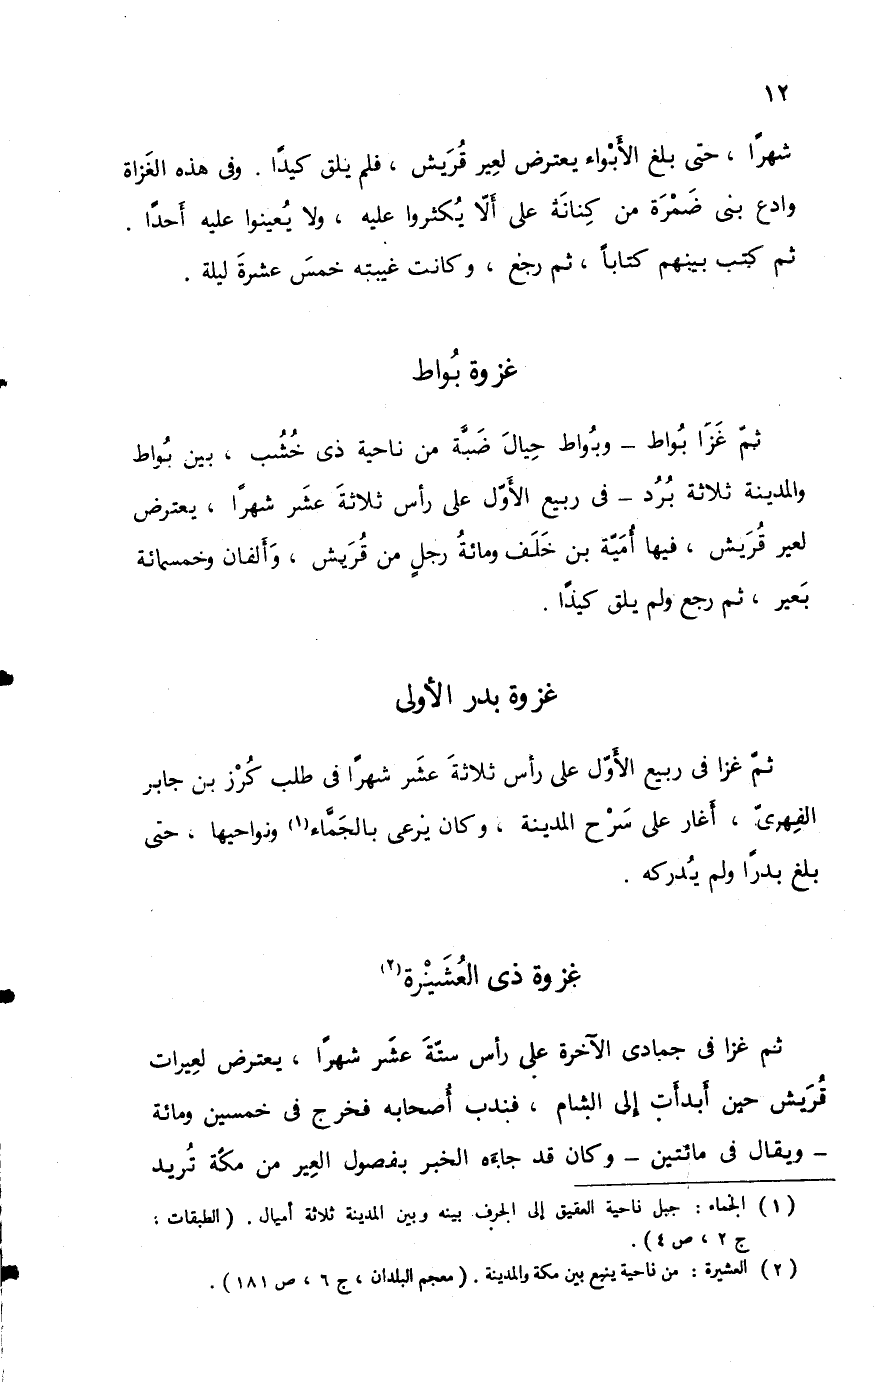 ١٢
شهرًا ، حتى بلغ الأَبْواء يعترض لعِير قُرَيش ، فلم يلق كيدًا . وفى هذه الغَزاة
وادع بنى ضَمْرَة من كِنانَة على ألّا يُكثروا عليه ، ولا يُعينوا عليه أحدًا .
ثم كتب بينهم كتاباً ، ثم رجع ، وكانت غيبته خمسَ عشرةَ ليلة .
غزوة بُواط
ثمّ غَزَا بُواط – وبُواط حِيالَ ضَبَّة من ناحية ذى خُشُب ، بين بُواط
والمدينة ثلاثة بُرُد – فى ربيع الأوّل على رأس ثلاثةَ عشَر شهرًا ، يعترض
لعير قُرَيش ، فيها أُمَيّة بن خَلَف ومائةُ رجلٍ من قُرَيش ، وَأَلفان وخمسمائة
بَعير ، ثم رجع ولم يلق كيدًا .
غزوة بدر الأولى
ثمّ غزا فى ربيع الأَوّل على رأس ثلاثةَ عشَر شهرًا فى طلب كُرْز بن جابر
الفِهرىّ ، أَغار على سَرْح المدينة ، وكان يرعى بالجَمَّاء(١) ونواحيها ، حتى
بلغ بدرًا ولم يُدركه .
غزوة ذى العُشَيْرة(٢)
ثم غزا فى جمادى الآخرة على رأس ستّةَ عشَر شهرًا ، يعترض لعِيرات
قُرَيش حين أَبدأَت إلى الشام ، فندب أَصحابه فخرج فى خمسين ومائة
– ويقال فى مائتين – وكان قد جاءه الخبر بفصول العِير من مكّة تُريد
(١) الجماء : جبل ناحية العقيق إلى الجرف بينه وبين المدينة ثلاثة أميال . (الطبقات ؛
ج ٢ ، ص ٤) .
(٢) العشيرة : من ناحية ينبع بين مكة والمدينة . (معجم البلدان ، ج ٦ ، ص ١٨١) .